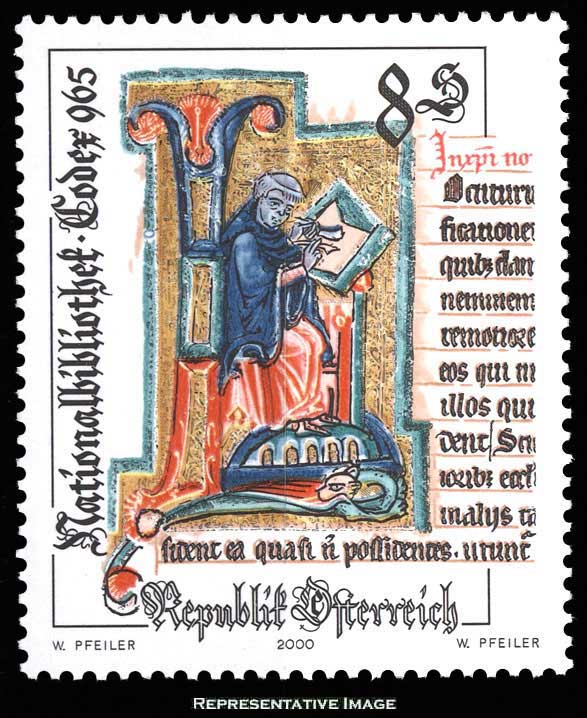 Nationalbibliothek · Codex 965
8 S
Inxpi no
ficatione
quibz
neminem
remotiore
eos qui ni
illos qui
dent
ioribz
malys
sident ea quasi n possidentes. utunt
Republik Österreich
W. PFEILER 2000 W. PFEILER
REPRESENTATIVE IMAGE